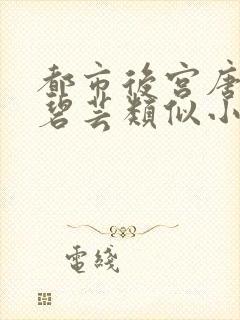 都市後宮唐
碧芸類似小
電綫